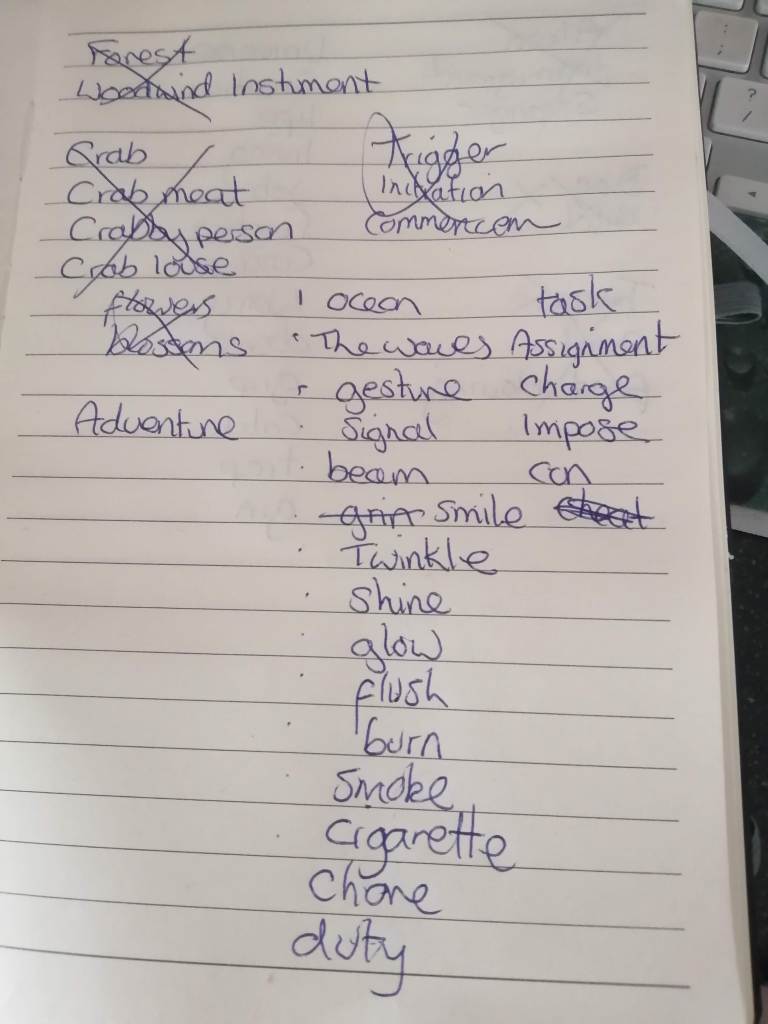 Forest
Woodwind Instument
Crab
Crab meat
Crabby person
Crab louse
flowers
blossoms
Adventure
Trigger
Initation
Commencem
ocean
The waves
gesture
Signal
beam
grin smile
Twinkle
Shine
glow
flush
burn
Smoke
Cigarette
Chore
duty
task
Assignment
Charge
Impose
con
cheat